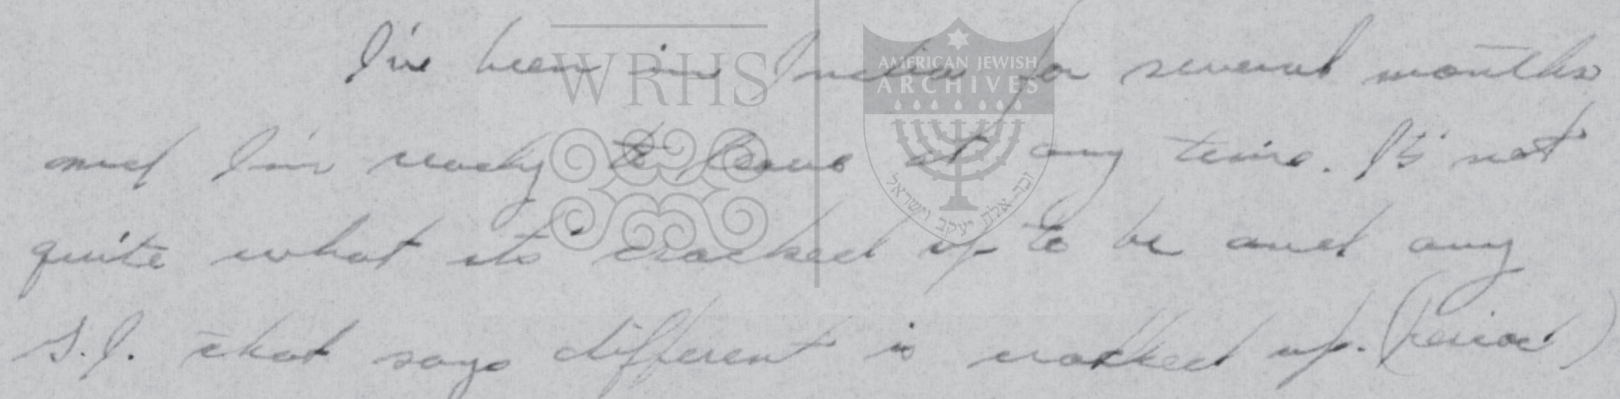 I've been in India for several months
and I'm ready to leave at any time. It's not
quite what its cracked up to be and any
G.I. that says different is cracked up. (Period)
WRHS
AMERICAN JEWISH
ARCHIVES